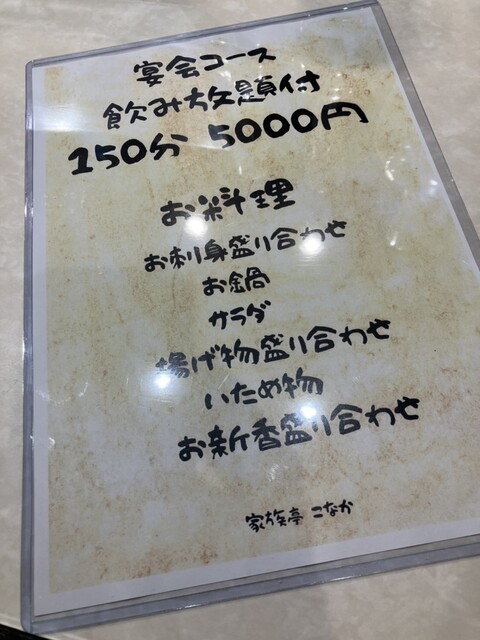 宴会コース
飲み放題付
150分 5000円
お料理
お刺身盛り合わせ
お鍋
サラダ
揚げ物盛り合わせ
いため物
お新香盛り合わせ
家族亭 こなか